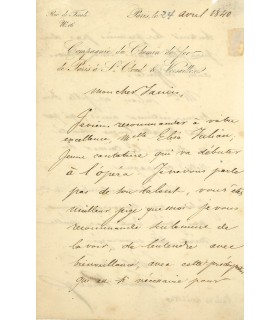 Paris le 24 avril 1840
Compagnie du Chemin de fer
de Paris à St Cloud & Versailles
mon cher Janin,
Je viens recommander à votre
excellence, Melle Elise Julian,
jeune cantatrice qui va débuter
à l'opéra. Je ne vous parle
pas de son talent, vous êtes
meilleur juge que moi. Je vous
recommande seulement de
la voir, de l'entendre avec
bienveillance, avec cette
qui est si nécessaire pour